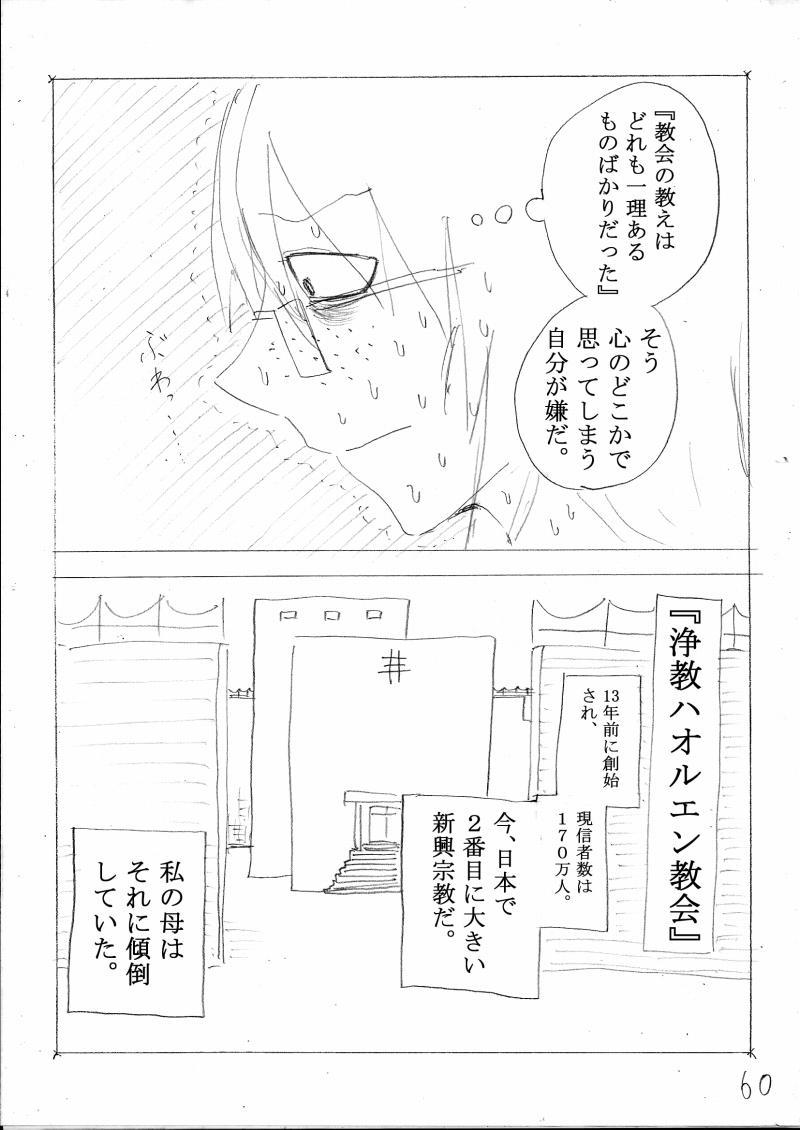 『教会の教えは
どれも一理ある
ものばかりだった』
そう
心のどこかで
思ってしまう
自分が嫌だ。
ぶわっ…
『浄教ハオルエン教会』
13年前に創始
され、
現信者数は
１７０万人。
今、日本で
２番目に大きい
新興宗教だ。
私の母は
それに傾倒
していた。
60